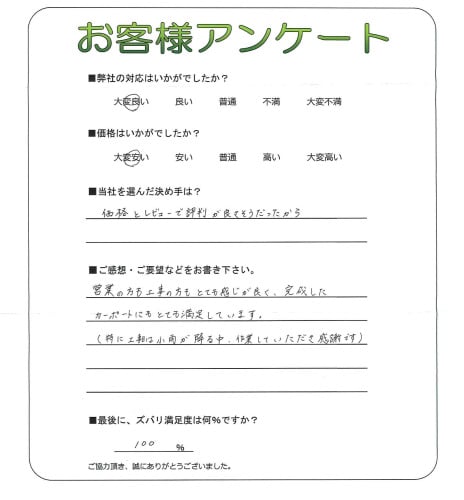 お客様アンケート
■弊社の対応はいかがでしたか？
大変良い 良い 普通 不満 大変不満
■価格はいかがでしたか？
大変安い 安い 普通 高い 大変高い
■当社を選んだ決め手は？
価格とレビューで評判が良さそうだったから
■ご感想・ご要望などをお書き下さい。
営業の方も工事の方もとても感じが良く、完成した
カーポートにもとても満足しています。
(特に工事は小雨が降る中、作業していただき感謝です)
■最後に、ズバリ満足度は何%ですか？
100 %
ご協力頂き、誠にありがとうございました。